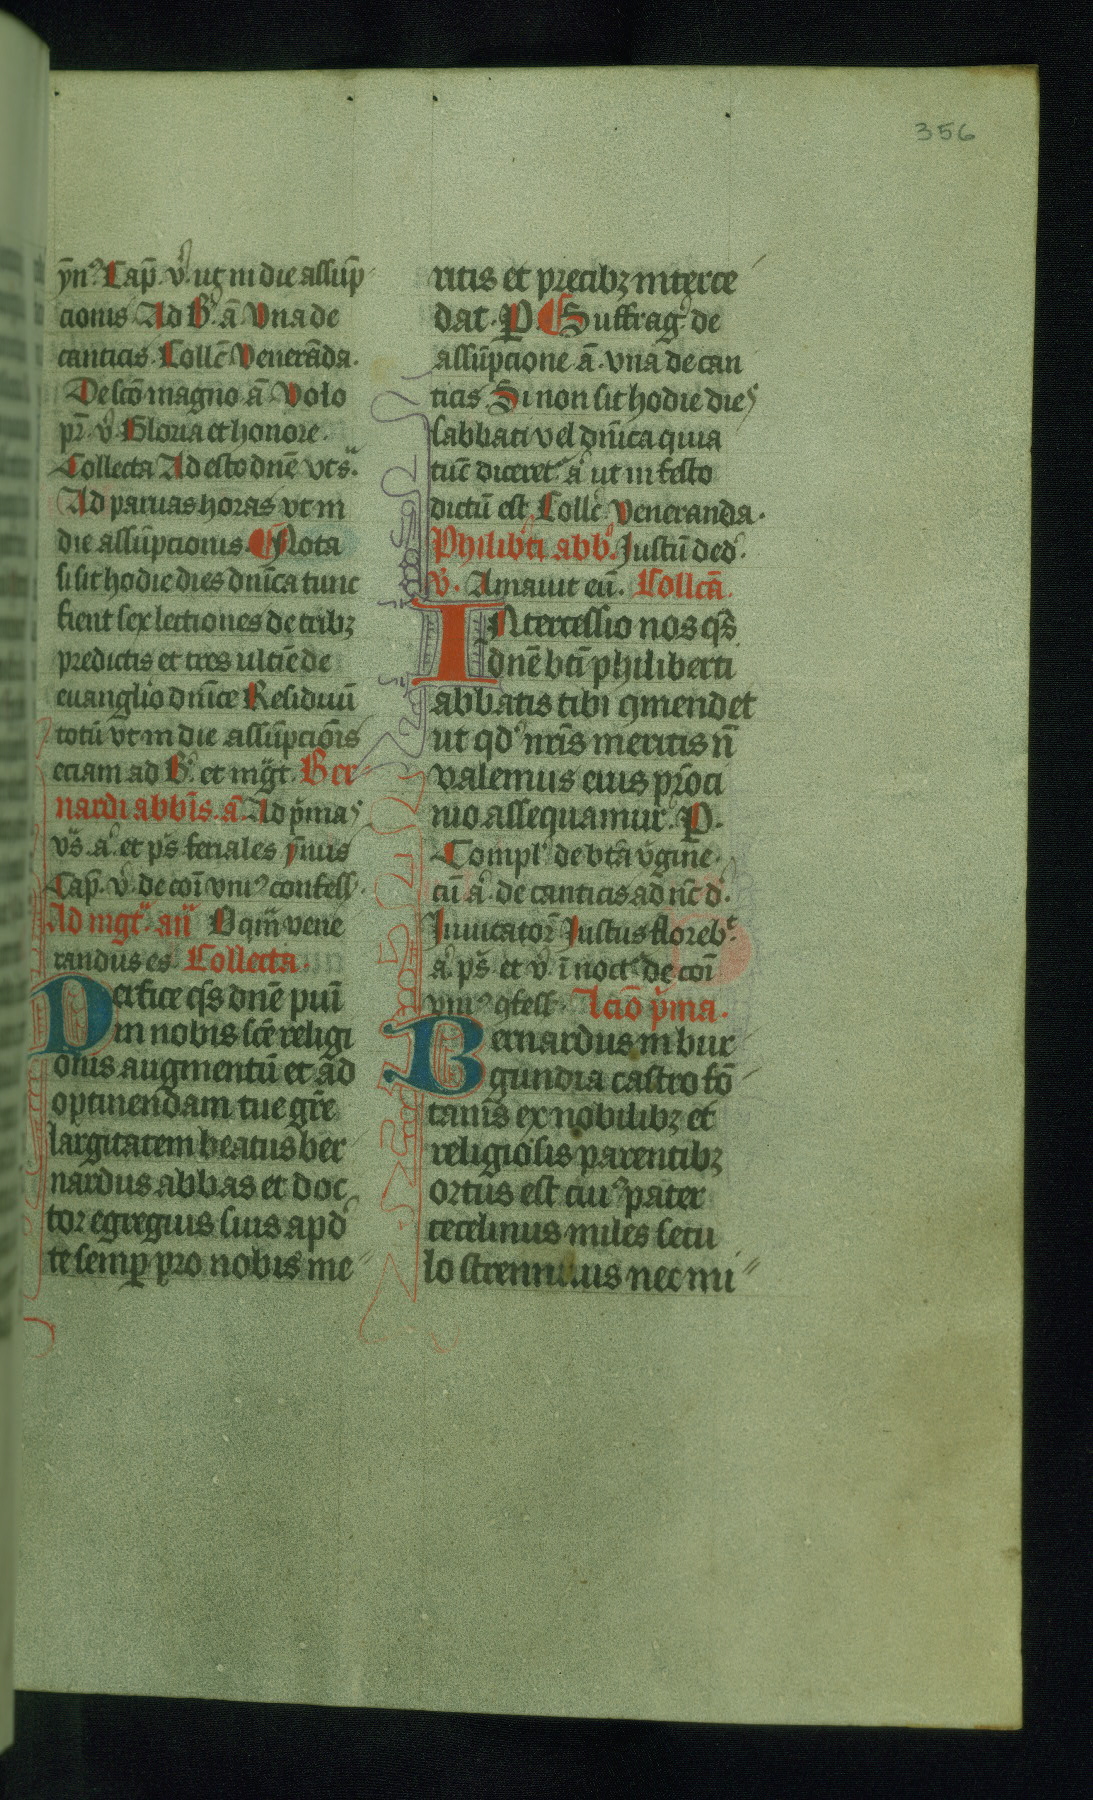 356
ẏn᷒ Cap̄. v̉. ut in die assūp
cionis Ad B᷒. ā Vna de
canticis. Collc̄ Venerāda.
De scō magno ā Volo
pr̄. v̉. Gloria et honore.
Collecta Adesto dn̄e vts̉.
Ad paruas horas vt in
die assūpcionis. Nota
si sit hodie dies dn̄ica tunc
fient sex lectiones de tribꝫ
predictis et tres ultīe de
euanglio dn̄ice Residuū
totū vt in die assūpciōis
eciam ad B᷒. et mg̉t. Ber
nardi abb̄is. ā. Ad p̉mas
vs̉. a᷒. et ps̉ feriales ẏmus
Cap̄. v̉. de coī vni᷒ confess.
Ad mg̉t. an̄ O qm̄ vene
randus es. Collecta.
Perfice qs̄ dn̄e piū
in nobis scē religi
onis augmentū et ad
optinendam tue gr̄e
largitatem beatus ber
nardus abbas et doc
tor egregius suis apd᷒
te semꝑ pro nobis me
ritis et precibꝫ interce
dat. P. Suffrag᷒. de
assūpcione ā. vna de can
ticis Si non sit hodie dies
sabbati vel dn̄ica quia
tūc diceret᷒ a᷒ ut in festo
dictū est Collc̄. Veneranda.
Philib̓ti abb̓. Justū ded᷒.
v̉. Amauit eū. Collcā.
INtercessio nos qs̄
dn̄e bt̄i philiberti
abbatis tibi ꝯmendet
ut qd᷒ nr̄is meritis n̄
valemus eius pr̄oci
nio assequamur. P.
Compl᷒ de btā v̉gine.
cū a᷒. de canticis ad nc̄ d᷒.
Jnuitator̄ Justus floreb᷒t.
a᷒. ps̉ et v̉. ī noct᷒. de coī
vni᷒ ꝯfess. Lcīo p̉ma.
Bernardus in bur
gundia castro fō
tanis ex nobilibꝫ et
religiosis parentibꝫ
ortus est cui᷒ pater
tecelinus miles secu
lo strennuus nec mi